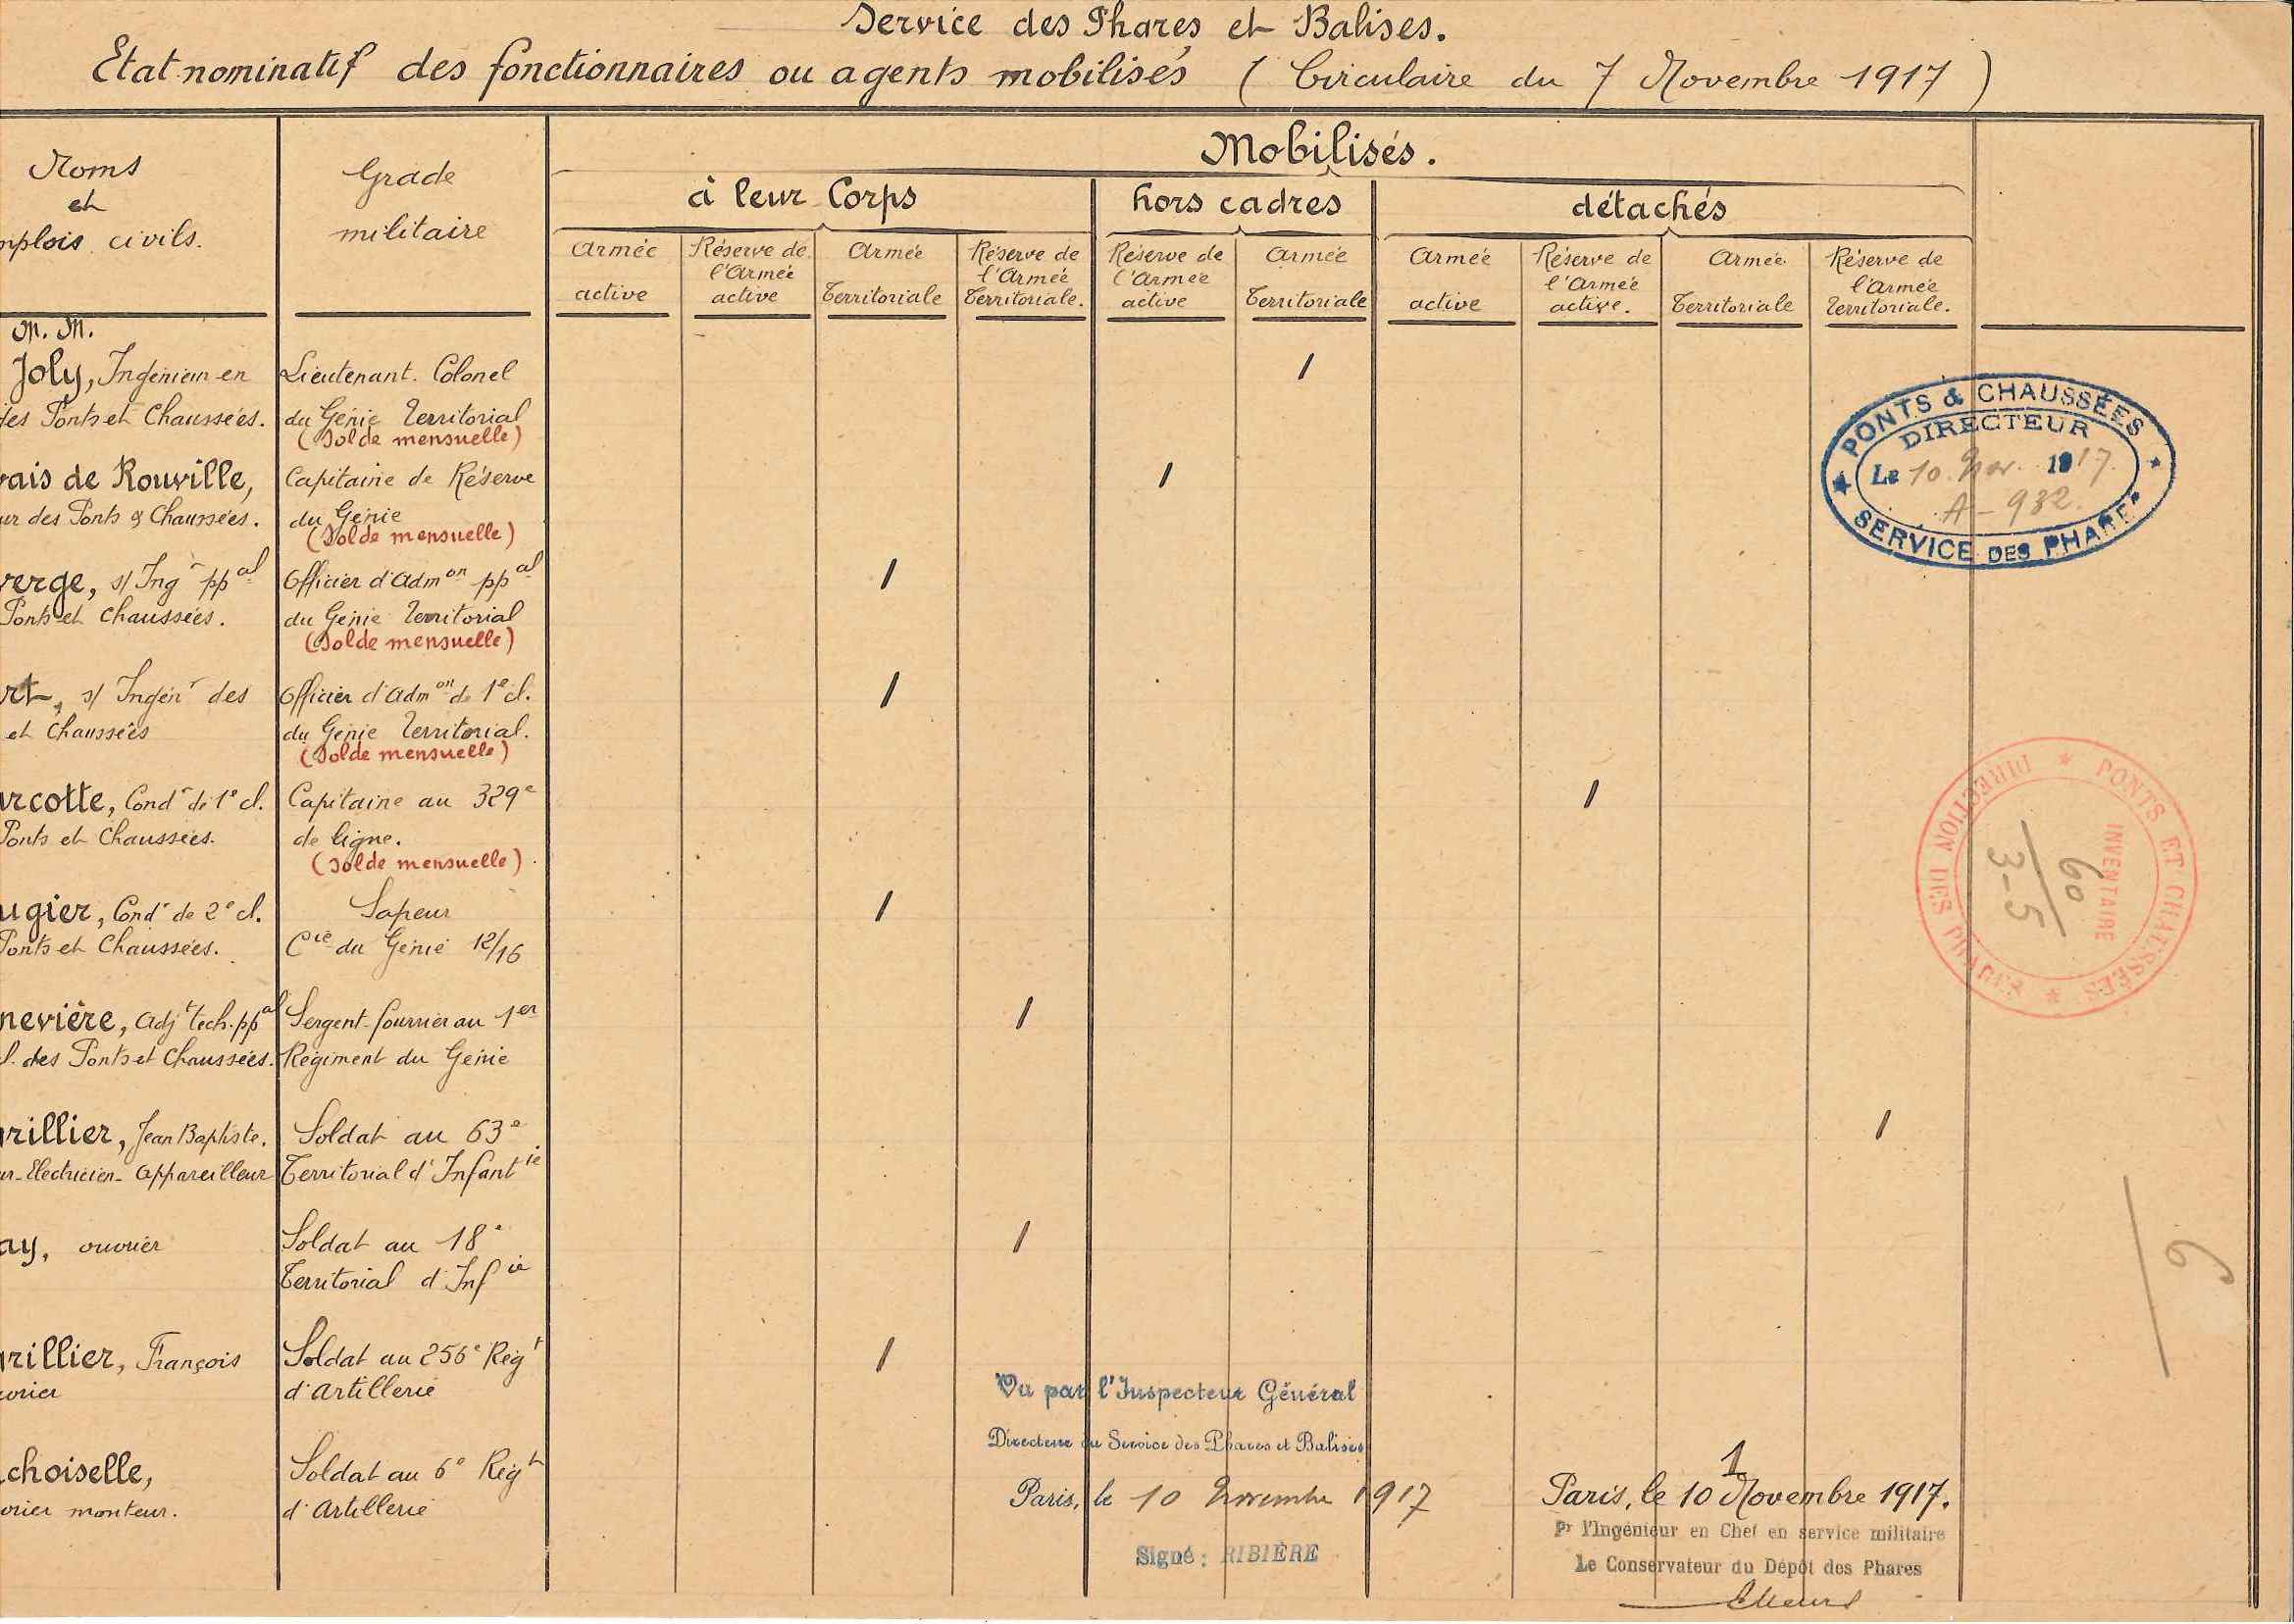 Service des Phares et Balises.
Etat nominatif des fonctionnaires ou agents mobilisés ( Circulaire du 7 Novembre 1917 )
Noms
et
mplois civils.
Grade
militaire
Mobilisés.
à leur Corps
hors cadres
détachés
Armée
active
Réserve de
l'Armée
active
Armée
Territoriale
Réserve de
l'Armée
Territoriale.
Réserve de
l'Armée
active
Armée
Territoriale
Armée
active
Réserve de
l'Armée
active.
Armée
Territoriale
Réserve de
l'Armée
Territoriale.
M. M.
Joly, Ingénieur en Lieutenant. Colonel 1
des Ponts et Chaussées. du Génie Territorial
(Solde mensuelle)
vais de Rouville, Capitaine de Réserve 1
ur des Ponts & Chaussées. du Génie
(Solde mensuelle)
verge, s/ Ingr ppal Officier d'Admon ppal 1
Ponts et Chaussées. du Génie Territorial
(Solde mensuelle)
rt, s/ Ingénr des Officier d'Admon de 1e cl. 1
et Chaussées du Génie Territorial.
(Solde mensuelle)
arcotte, Condr de 1e cl. Capitaine au 329e 1
Ponts et Chaussées. de ligne.
(Solde mensuelle)
ugier, Condr de 2e cl. Sapeur 1
Ponts et Chaussées. Cie du Génie 12/16
nevière, Adjt tech. ppal Sergent-fourrier au 1er 1
l. des Ponts et Chaussées. Régiment du Génie
rillier, Jean Baptiste. Soldat au 63e 1
ur-Electricien-Appareilleur Territorial d'Infantie
ay, ouvrier Soldat au 18e 1
Territorial d'Infie
rillier, François Soldat au 256e Régt 1
vrier d'Artillerie
choiselle, Soldat au 6e Régt 1
vrier monteur. d'Artillerie
PONTS & CHAUSSÉES
DIRECTEUR
Le 10 Nov. 1917.
A-932.
SERVICE DES PHARES
PONTS ET CHAUSSÉES
DIRECTION DES PHARES
INVENTAIRE
60
3-5
6
Vu par l'Inspecteur Général
Directeur du Service des Phares et Balises
Paris, le 10 Novembre 1917
Signé: RIBIÈRE
Paris, le 10 Novembre 1917.
Pr l'Ingénieur en Chef en service militaire
Le Conservateur du Dépôt des Phares